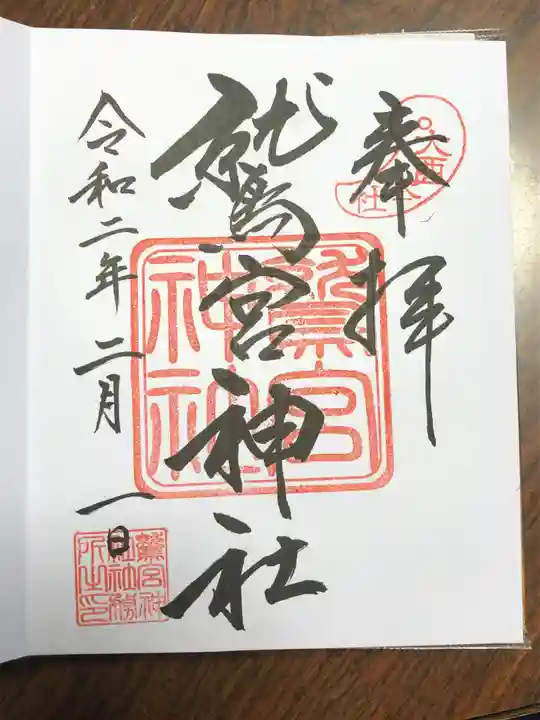 奉拝
鷲宮神社
鷲宮神社
令和二年二月一日
鷲宮神社社務所之印